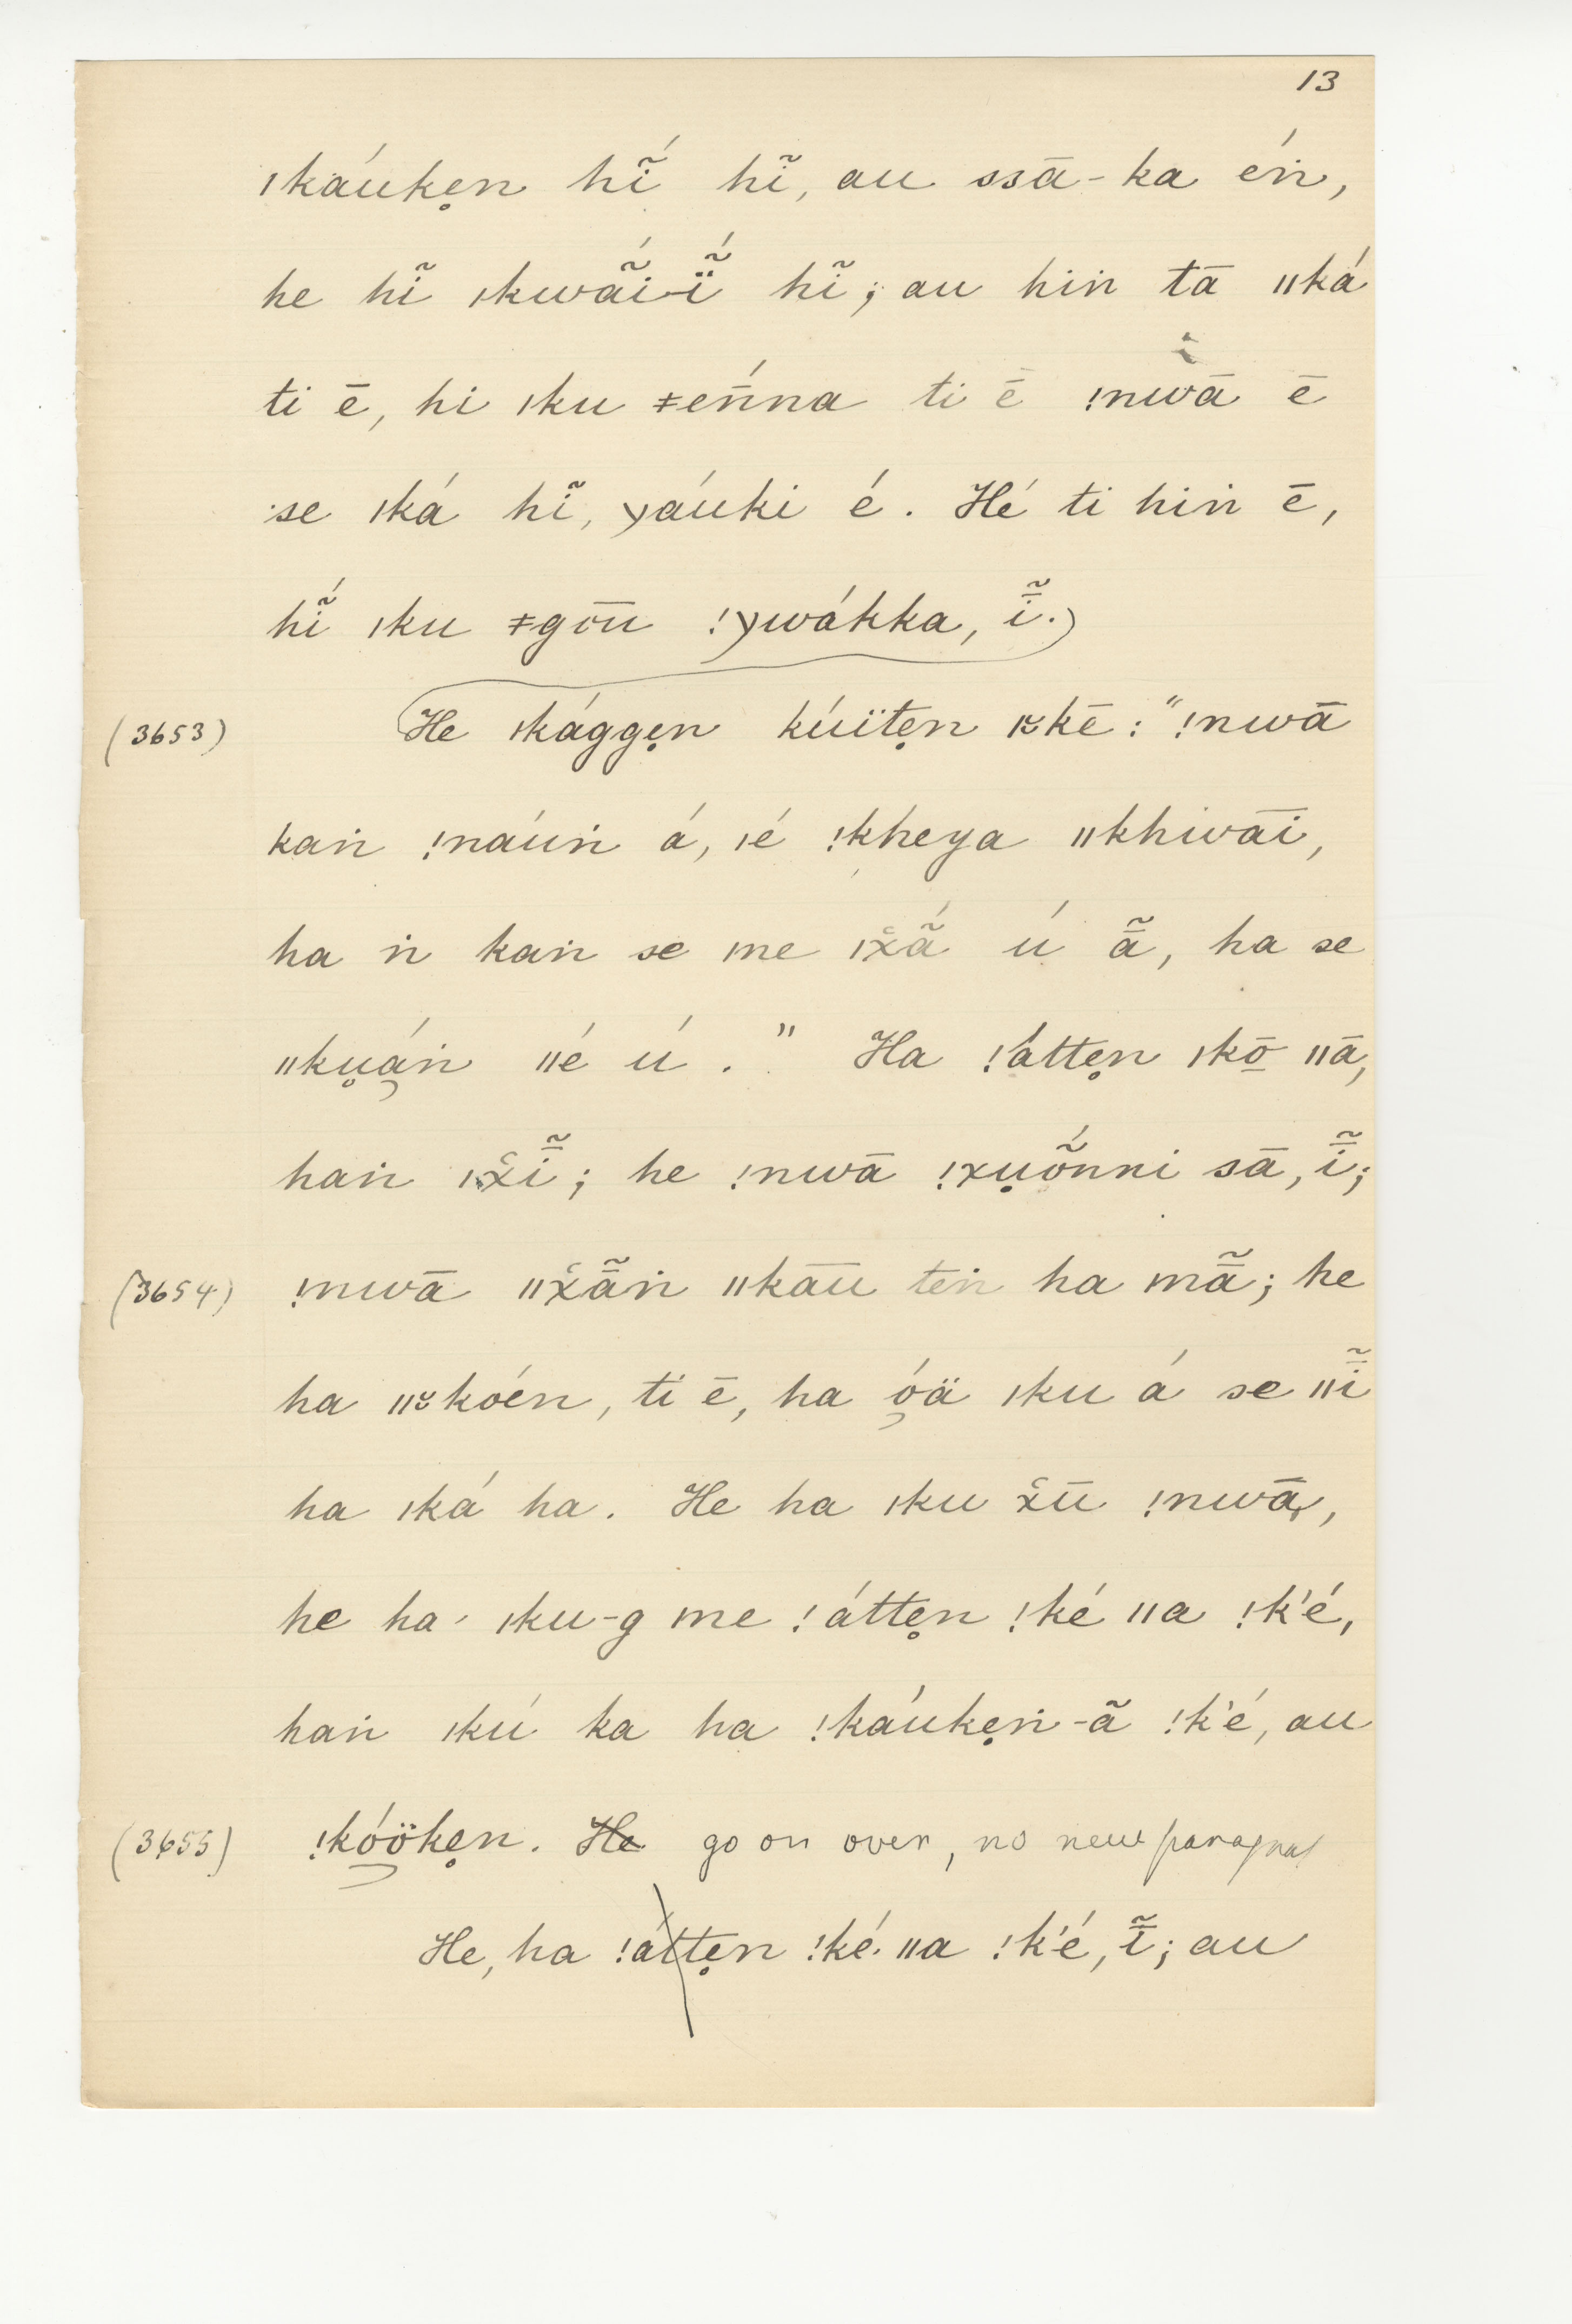 13
ǀkáuke̥n hĩ́ hĩ, au ssā-ka éṅ,
he hĩ ǀkwãí-ĩ́ hĩ; au hiṅ tā ǁká
ti ē, hi ǀku ǂeṅ́na ti ē ǃnwā ē
se ǀká hĩ, yáuki é. Hé ti hiṅ ē,
hĩ́ ǀku ǂgou̅ ǃywákka, ĩ̄.)
(3653) He ǀkágge̥n kúïte̥n ǀɤkē: "ǃnwā
kaṅ ǃnáuṅ á, ǀé ǃkheya ǁkhwāī,
ha ṅ kaṅ se ǀne ǀx̆ã́ ú ã̄, ha se
ǁku̥á̜ṅ ǁé ú." Ha ǃátte̥n ǀkō̱ ǁā,
haṅ ǀx̆ĩ̄; he ǃnwā ǃxu̥ṍnni sā, ĩ̄;
(3654) ǃnwā ǁx̆ã̄ṅ ǁkāū teṅ ha mã̄; he
ha ǁɤkóén, ti ē, ha ó̜ä ǀku á se ǁĩ̄
ha ǀká ha. He ha ǀku x̆ū ǃnwā,
he ha ǀku-g ǀne ǃátte̥n ǃké ǁa ǃk'é,
haṅ ǀkú ka ha ǃkáuke̥ṅ-ã ǃk'é, au
(3655) ǃkó̜öke̥n. He go on over, no new paragraf
He, ha ǃátte̥n ǃké ǁa ǃk'é, ĩ̄; au